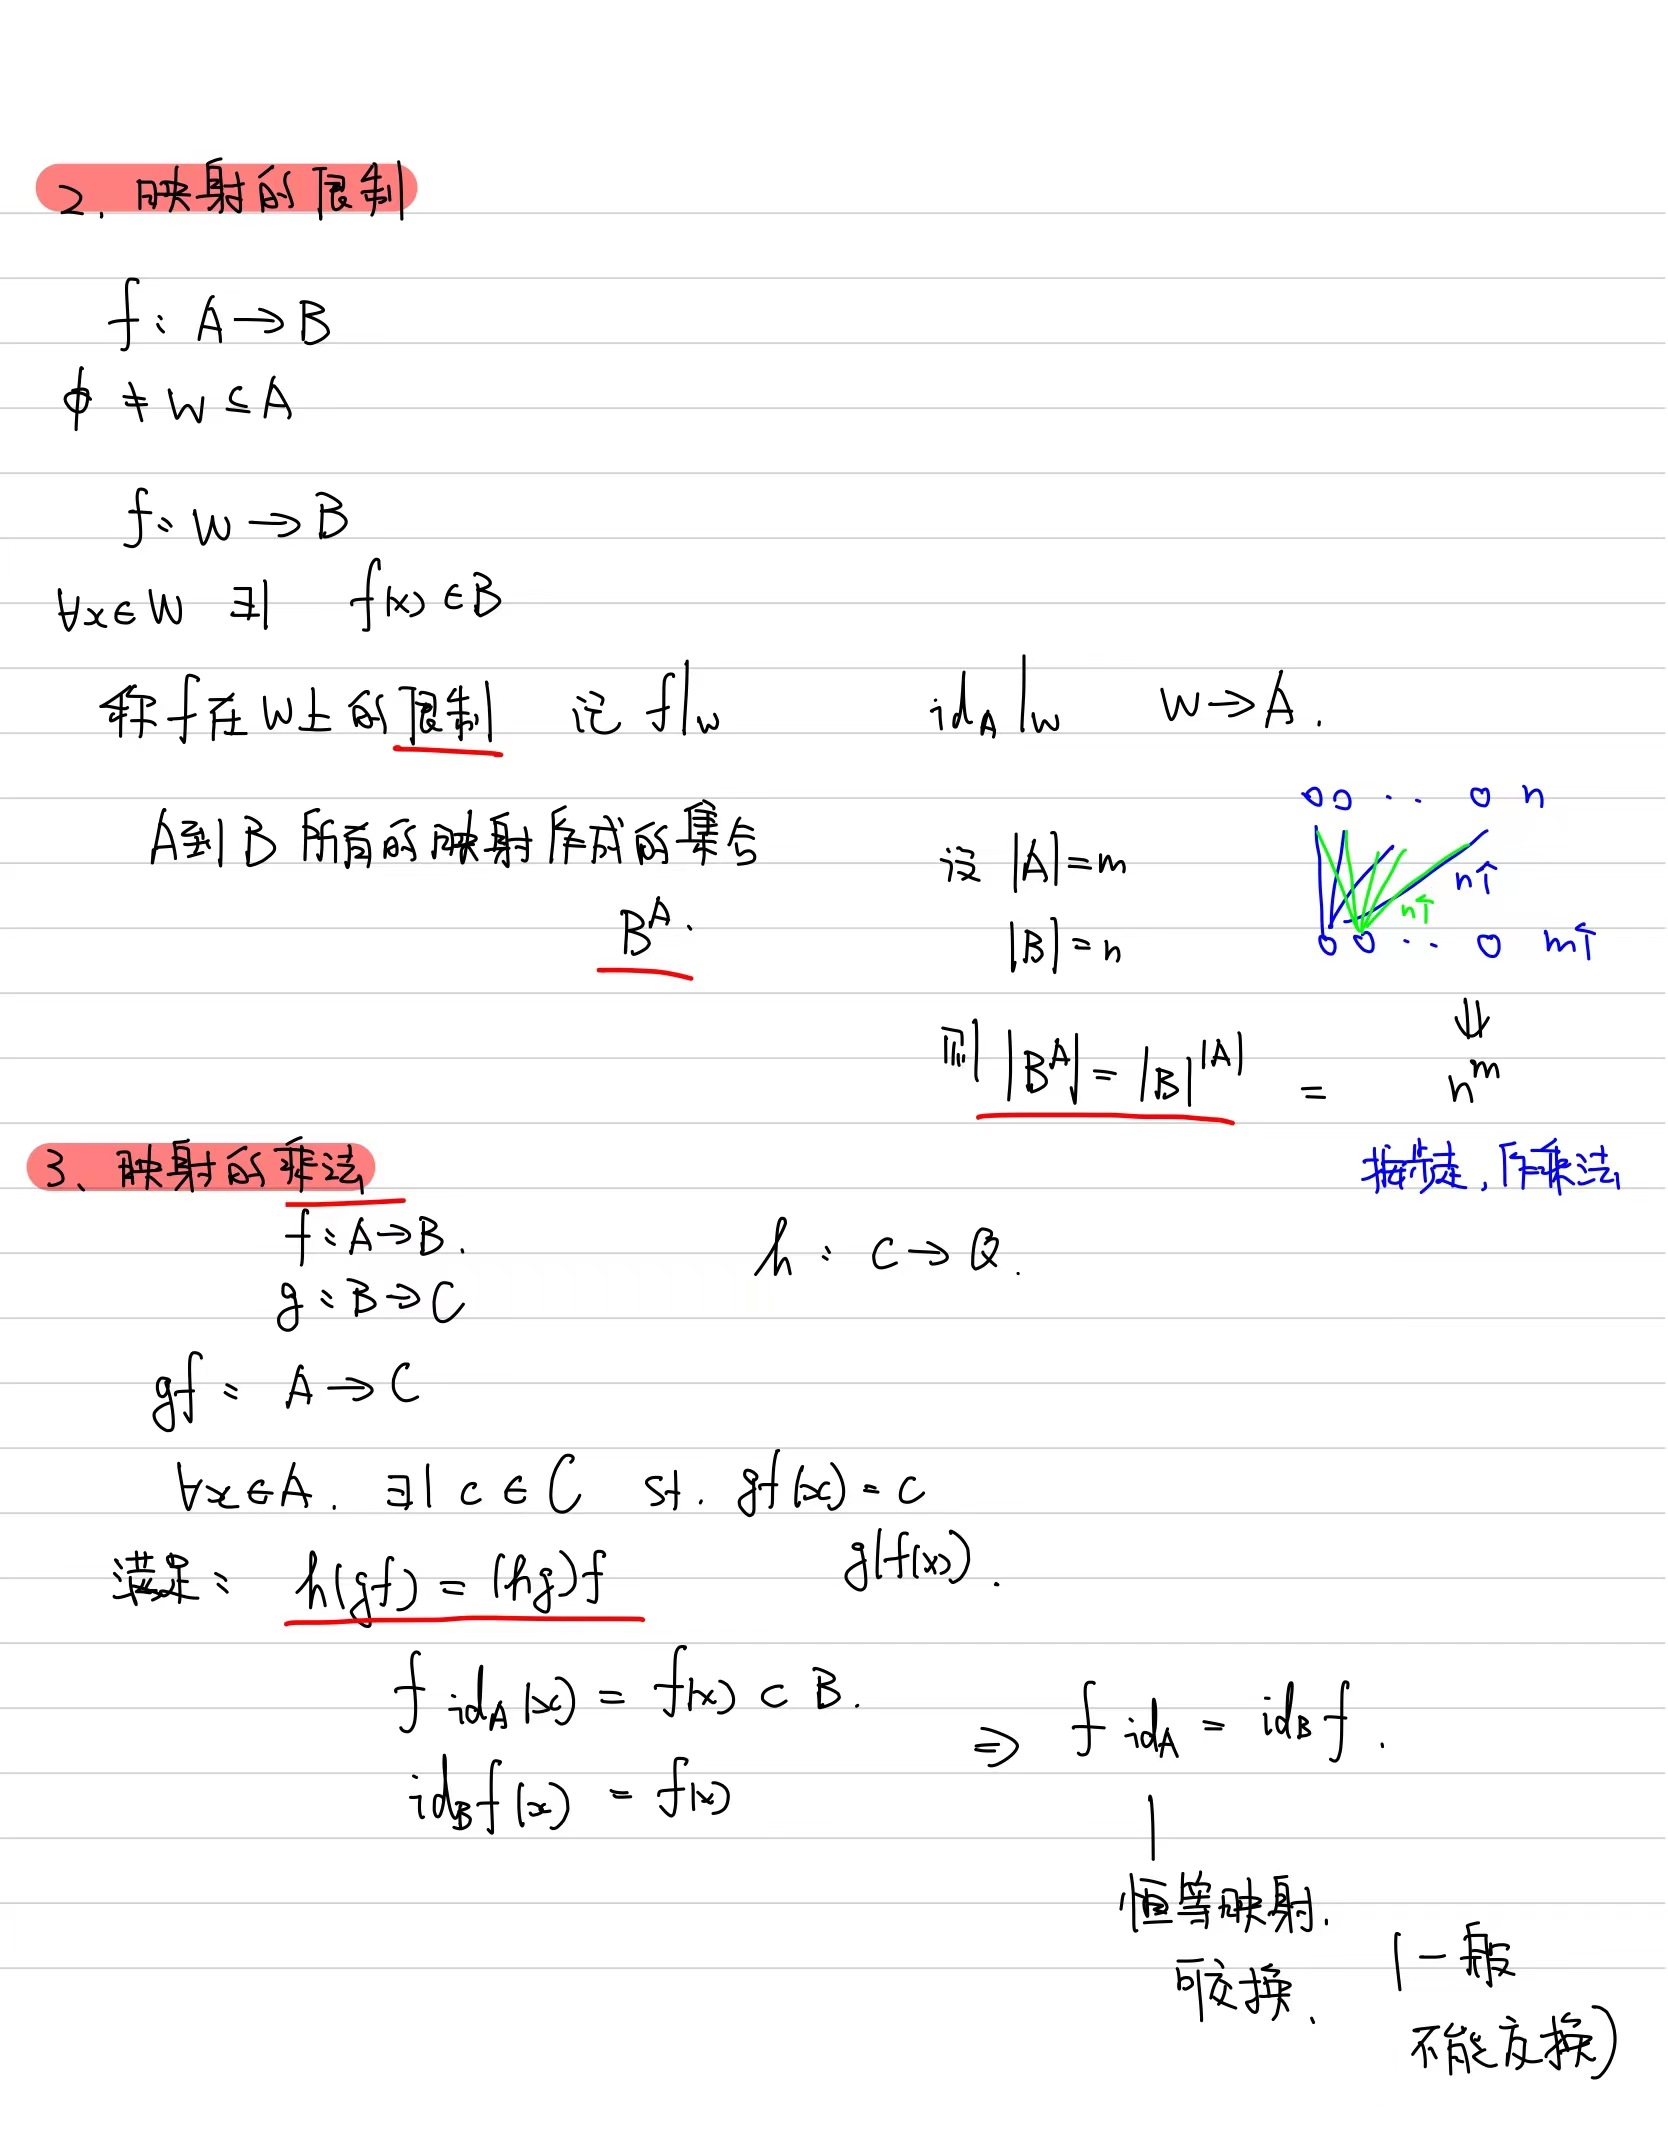 2. 映射的限制
f: A→B
ϕ ≠ W ⊆ A
f: W→B
∀x∈W ∃| f(x)∈B
称f在W上的限制 记 f|w id_A|w W→A.
A到B所有的映射作成的集合
B^A.
设 |A|=m
|B|=n
○○ ·· ○ n
n个
n个
○○ ·· ○ m个
⇓
则 |B^A| = |B|^|A| = n^m
按步走,作乘法
3、映射的乘法
f: A→B.
g: B→C
h: C→Q.
gf: A→C
∀x∈A. ∃| c∈C st. gf(x)=c
g(f(x)).
满足: h(gf) = (hg)f
f id_A(x) = f(x) ⊂ B.
id_B f(x) = f(x)
⇒ f id_A = id_B f.
恒等映射.
可交换.
(一般
不能交换)